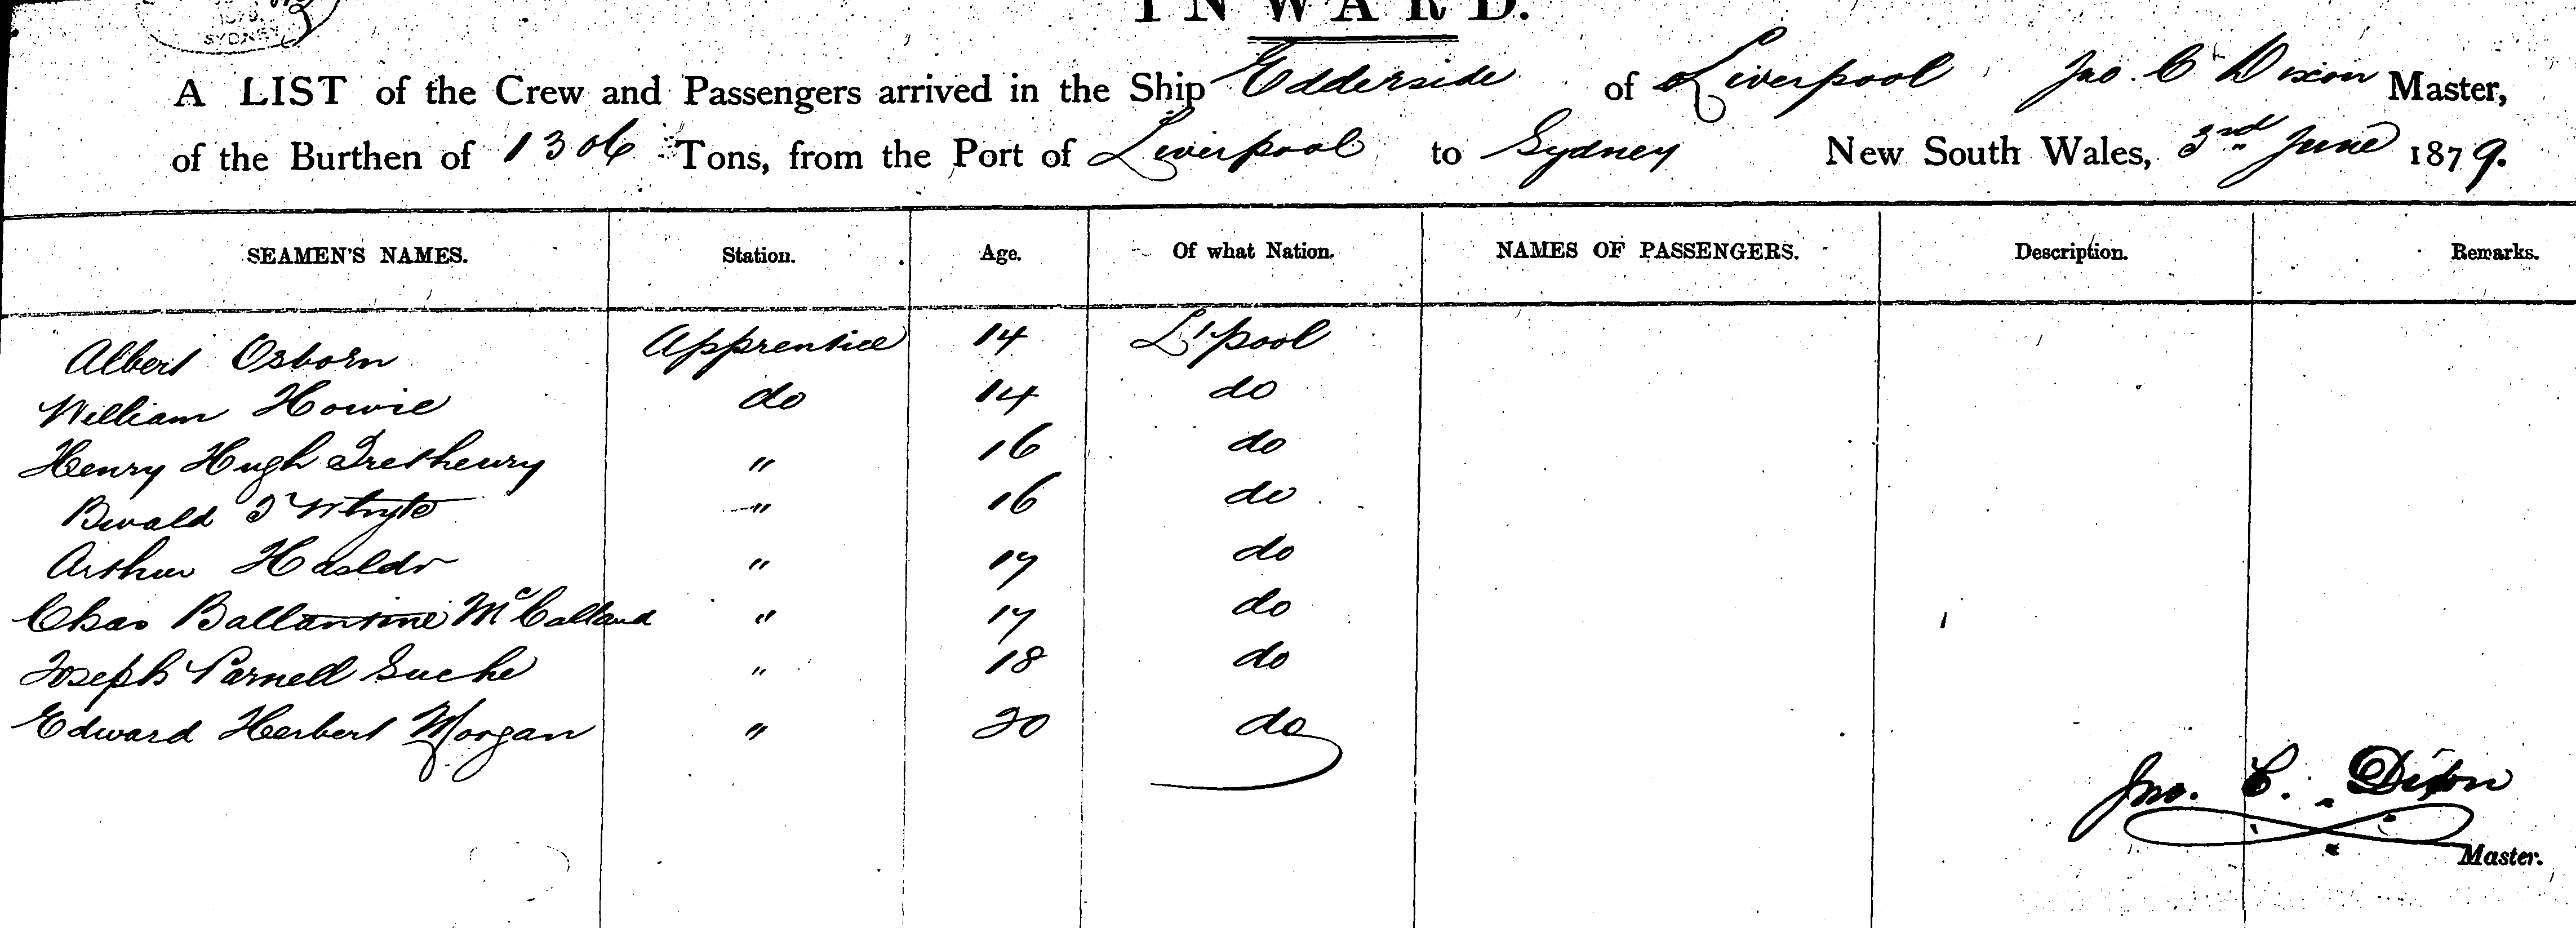 SYDNEY
INWARD.
A LIST of the Crew and Passengers arrived in the Ship Edderside of Liverpool Jno. C Dixon Master,
of the Burthen of 1306 Tons, from the Port of Liverpool to Sydney New South Wales, 3rd June 1879.
SEAMEN'S NAMES. Station. Age. Of what Nation. NAMES OF PASSENGERS. Description. Remarks.
Albert Osborn Apprentice 14 L'pool
William Howie do 14 do
Henry Hugh Tretheury " 16 do
T Whyte " 16 do
Arthur " 17 do
Chas Ballantine McCalland " 17 do
Joseph Parnell Suche " 18 do
Edward Herbert Morgan " 20 do
Jno. C. Dixon
Master.